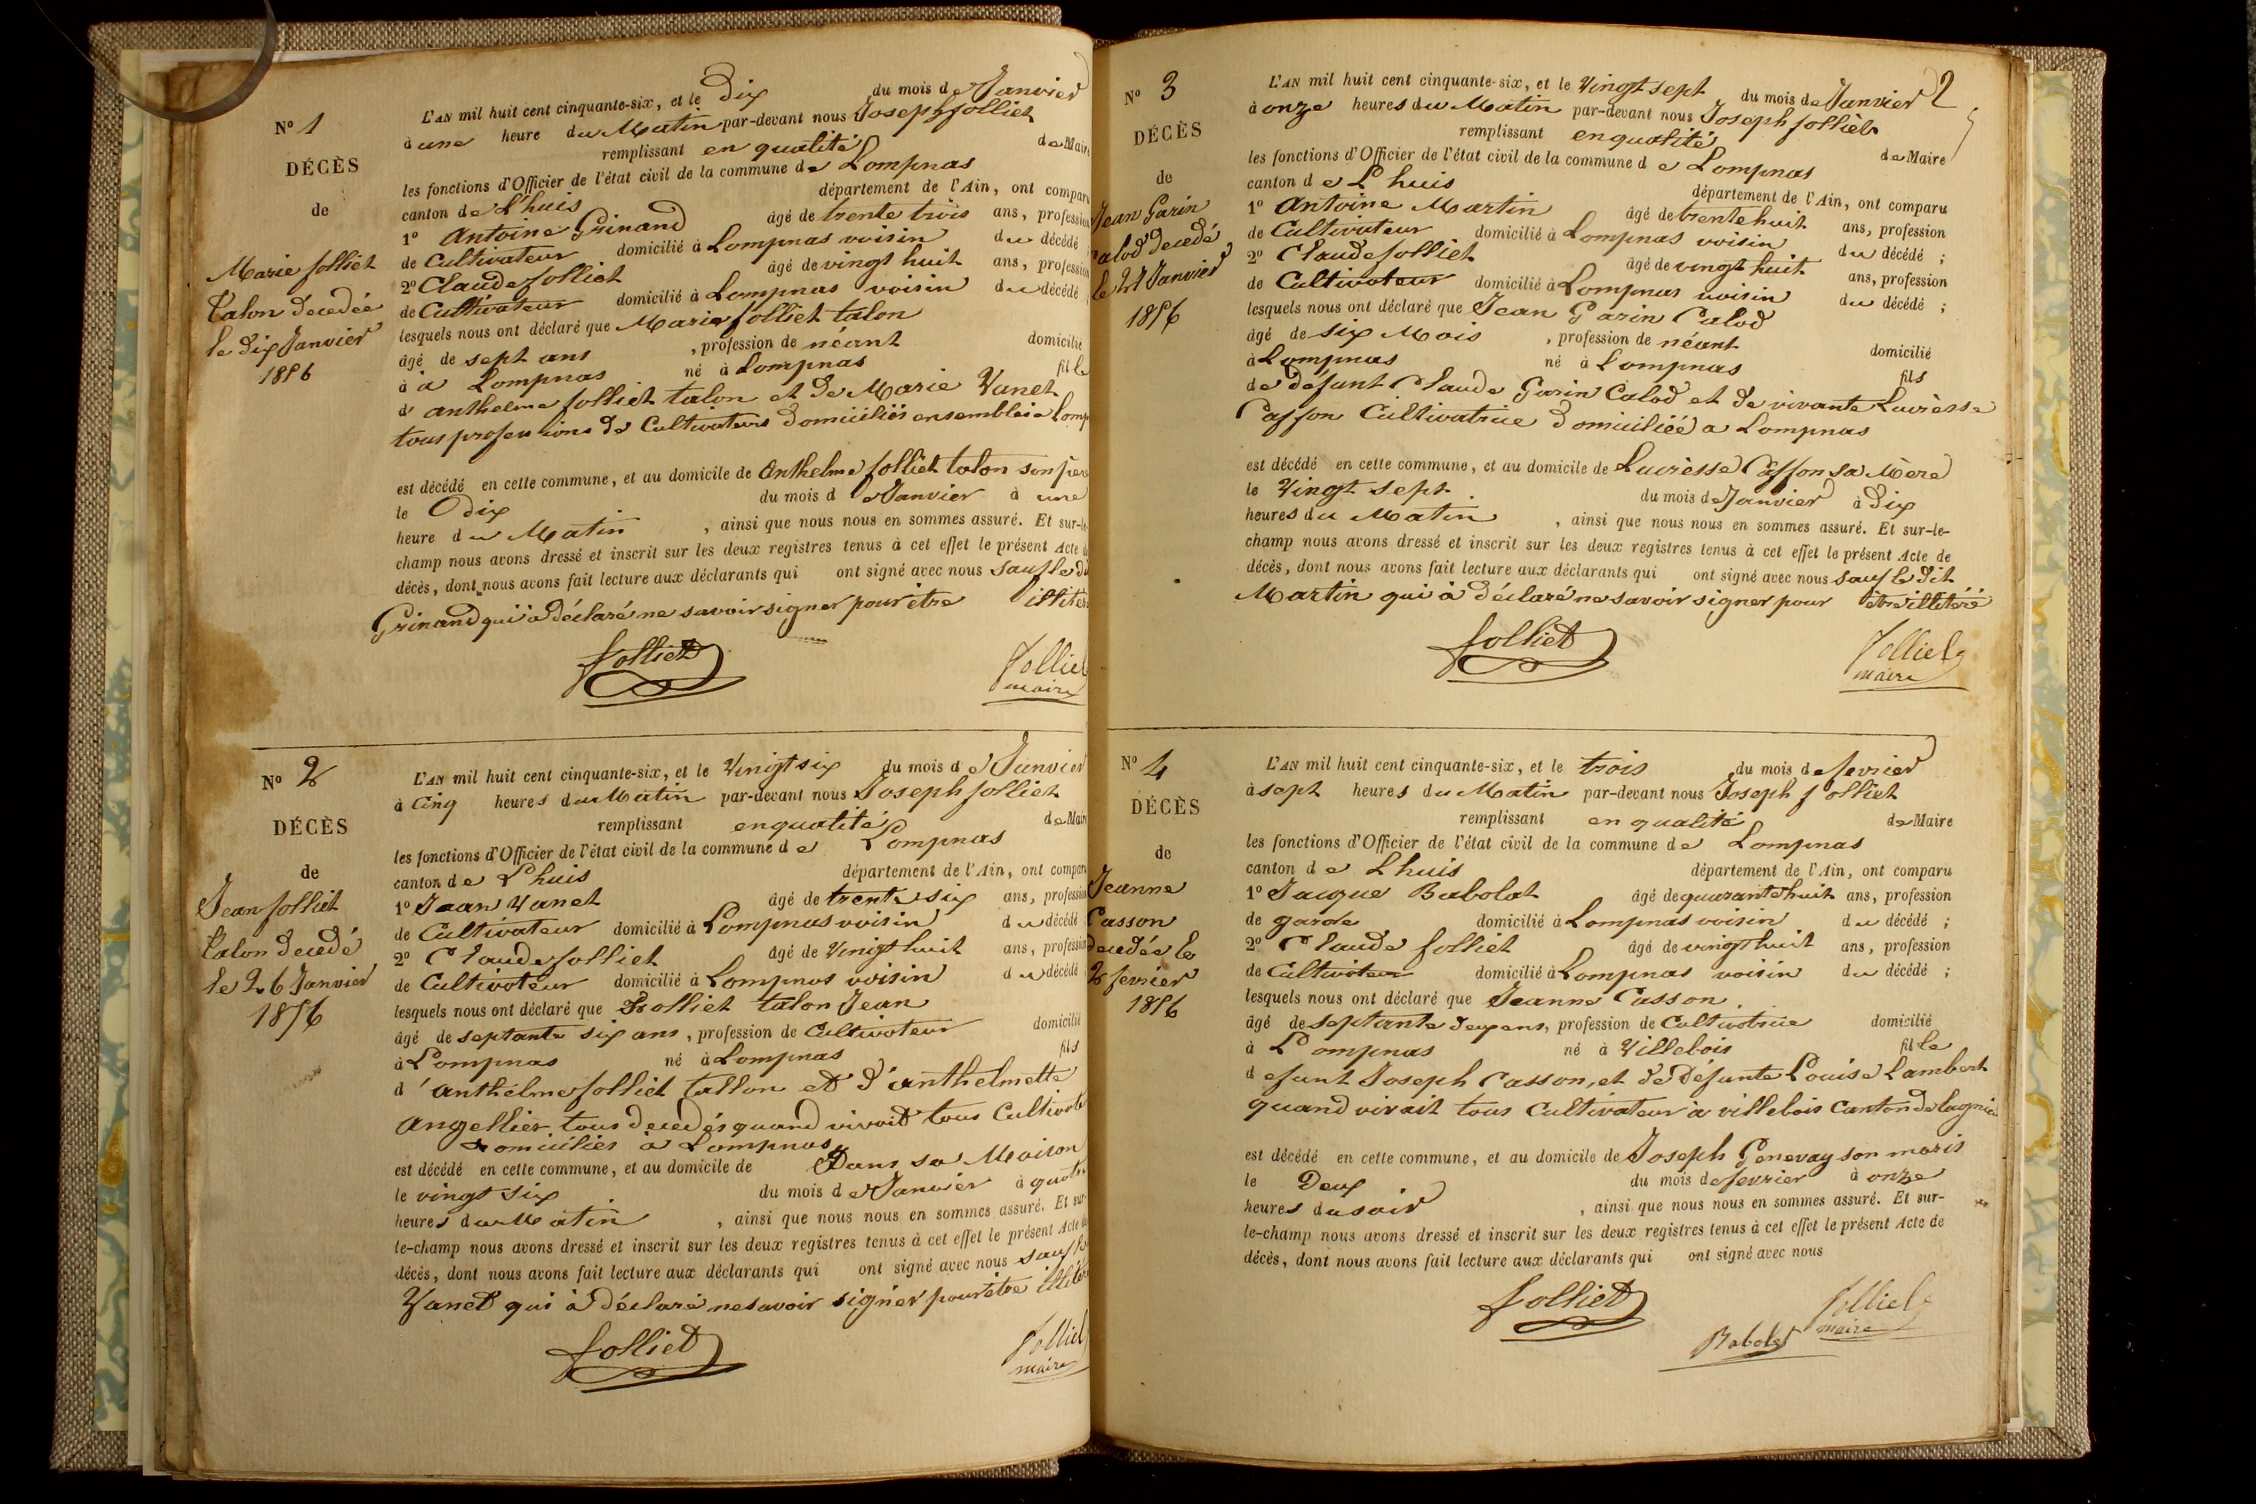 N° 1
DÉCÈS
de
Marie folliet
talon decedée
le dix Janvier
1856
L'AN mil huit cent cinquante-six, et le Dix du mois de Janvier
à une heure du Matin par-devant nous Joseph folliet
remplissant en qualité de Maire
les fonctions d'Officier de l'état civil de la commune de Lompnas
canton de L'huis département de l'Ain, ont comparu
1° Antoine Grinand âgé de trente trois ans, profession
de Cultivateur domicilié à Lompnas voisin du décédé
2° Claude folliet âgé de vingt huit ans, profession
de Cultivateur domicilié à Lompnas voisin du décédé
lesquels nous ont déclaré que Marie folliet talon
âgé de sept ans , profession de néant domicilié
à à Lompnas né à Lompnas fille
d' anthelme folliet talon et de Marie Vanet
tous professions de Cultivateurs Domiciliés ensemble a Lomp
est décédé en cette commune, et au domicile de Anthelme folliet talon son pere
le Dix du mois de Janvier à une
heure du Matin , ainsi que nous nous en sommes assuré. Et sur-le-
champ nous avons dressé et inscrit sur les deux registres tenus à cet effet le présent Acte de
décès, dont nous avons fait lecture aux déclarants qui ont signé avec nous sauf le di
Grinand qui à déclaré ne savoir signer pour être illiter
folliet
folliet
maire
N° 2
DÉCÈS
de
Jean folliet
talon decedé
le 26 Janvier
1856
L'AN mil huit cent cinquante-six, et le Vingt six du mois de Janvier
à Cinq heures du Matin par-devant nous Joseph folliet
remplissant en qualité de Maire
les fonctions d'Officier de l'état civil de la commune de Lompnas
canton de L'huis département de l'Ain, ont comparu
1° Jean Vanet âgé de trente six ans, profession
de Cultivateur domicilié à Lompnas voisin du décédé
2° Claude folliet âgé de Vingt huit ans, profession
de Cultivateur domicilié à Lompnas voisin du décédé
lesquels nous ont déclaré que folliet talon Jean
âgé de septante six ans , profession de Cultivateur domicilié
à Lompnas né à Lompnas fils
d' anthelme folliet tallon et d'anthelmette
Angellier tous decedés quand vivoit tous Cultivate
Domiciliés à Lompnas
est décédé en cette commune, et au domicile de Dans sa Maison
le vingt six du mois de Janvier à quatre
heures du Matin , ainsi que nous nous en sommes assuré. Et sur-
le-champ nous avons dressé et inscrit sur les deux registres tenus à cet effet le présent Acte de
décès, dont nous avons fait lecture aux déclarants qui ont signé avec nous sauf le
Vanet qui à déclaré ne savoir signer pour être illiter
folliet
folliet
maire
2
N° 3
DÉCÈS
de
Jean Garin
Calod decedé
le 27 Janvier
1856
L'AN mil huit cent cinquante-six, et le Vingt sept du mois de Janvier
à onze heures du Matin par-devant nous Joseph folliet
remplissant en qualité de Maire
les fonctions d'Officier de l'état civil de la commune de Lompnas
canton de L'huis département de l'Ain, ont comparu
1° Antoine Martin âgé de trente huit ans, profession
de Cultivateur domicilié à Lompnas voisin du décédé ;
2° Claude folliet âgé de vingt huit ans, profession
de Cultivateur domicilié à Lompnas voisin du décédé ;
lesquels nous ont déclaré que Jean Garin Calod
âgé de six Mois , profession de néant domicilié
à Lompnas né à Lompnas fils
de défunt Claude Garin Calod et de vivante Lucrèsse
Casson Cultivatrice Domiciliéé a Lompnas
est décédé en cette commune, et au domicile de Lucrèsse Casson sa Mère
le Vingt sept du mois de Janvier à Dix
heures du Matin , ainsi que nous nous en sommes assuré. Et sur-le-
champ nous avons dressé et inscrit sur les deux registres tenus à cet effet le présent Acte de
décès, dont nous avons fait lecture aux déclarants qui ont signé avec nous sauf le dit
Martin qui à déclaré ne savoir signer pour être illitéré
folliet
folliet
maire
N° 4
DÉCÈS
de
Jeanne
Casson
decedée le
2 fevrier
1856
L'AN mil huit cent cinquante-six, et le trois du mois de fevrier
à sept heures du Matin par-devant nous Joseph folliet
remplissant en qualité de Maire
les fonctions d'Officier de l'état civil de la commune de Lompnas
canton de Lhuis département de l'Ain, ont comparu
1° Jacque Babolat âgé de quarante huit ans, profession
de garde domicilié à Lompnas voisin du décédé ;
2° Claude folliet âgé de vingt huit ans, profession
de Cultivateur domicilié à Lompnas voisin du décédé ;
lesquels nous ont déclaré que Jeanne Casson
âgé de septante deux ans, profession de Cultivatrice domicilié
à Lompnas né à Villebois fille
defunt Joseph Casson, et de Défunte Louise Lambert
quand vivait tous Cultivateur à villebois Canton de lagnieu
est décédé en cette commune, et au domicile de Joseph Genevay son maris
le Deux du mois de fevrier à onze
heures du soir , ainsi que nous nous en sommes assuré. Et sur-
le-champ nous avons dressé et inscrit sur les deux registres tenus à cet effet le présent Acte de
décès, dont nous avons fait lecture aux déclarants qui ont signé avec nous
folliet
folliet
maire
Babolat